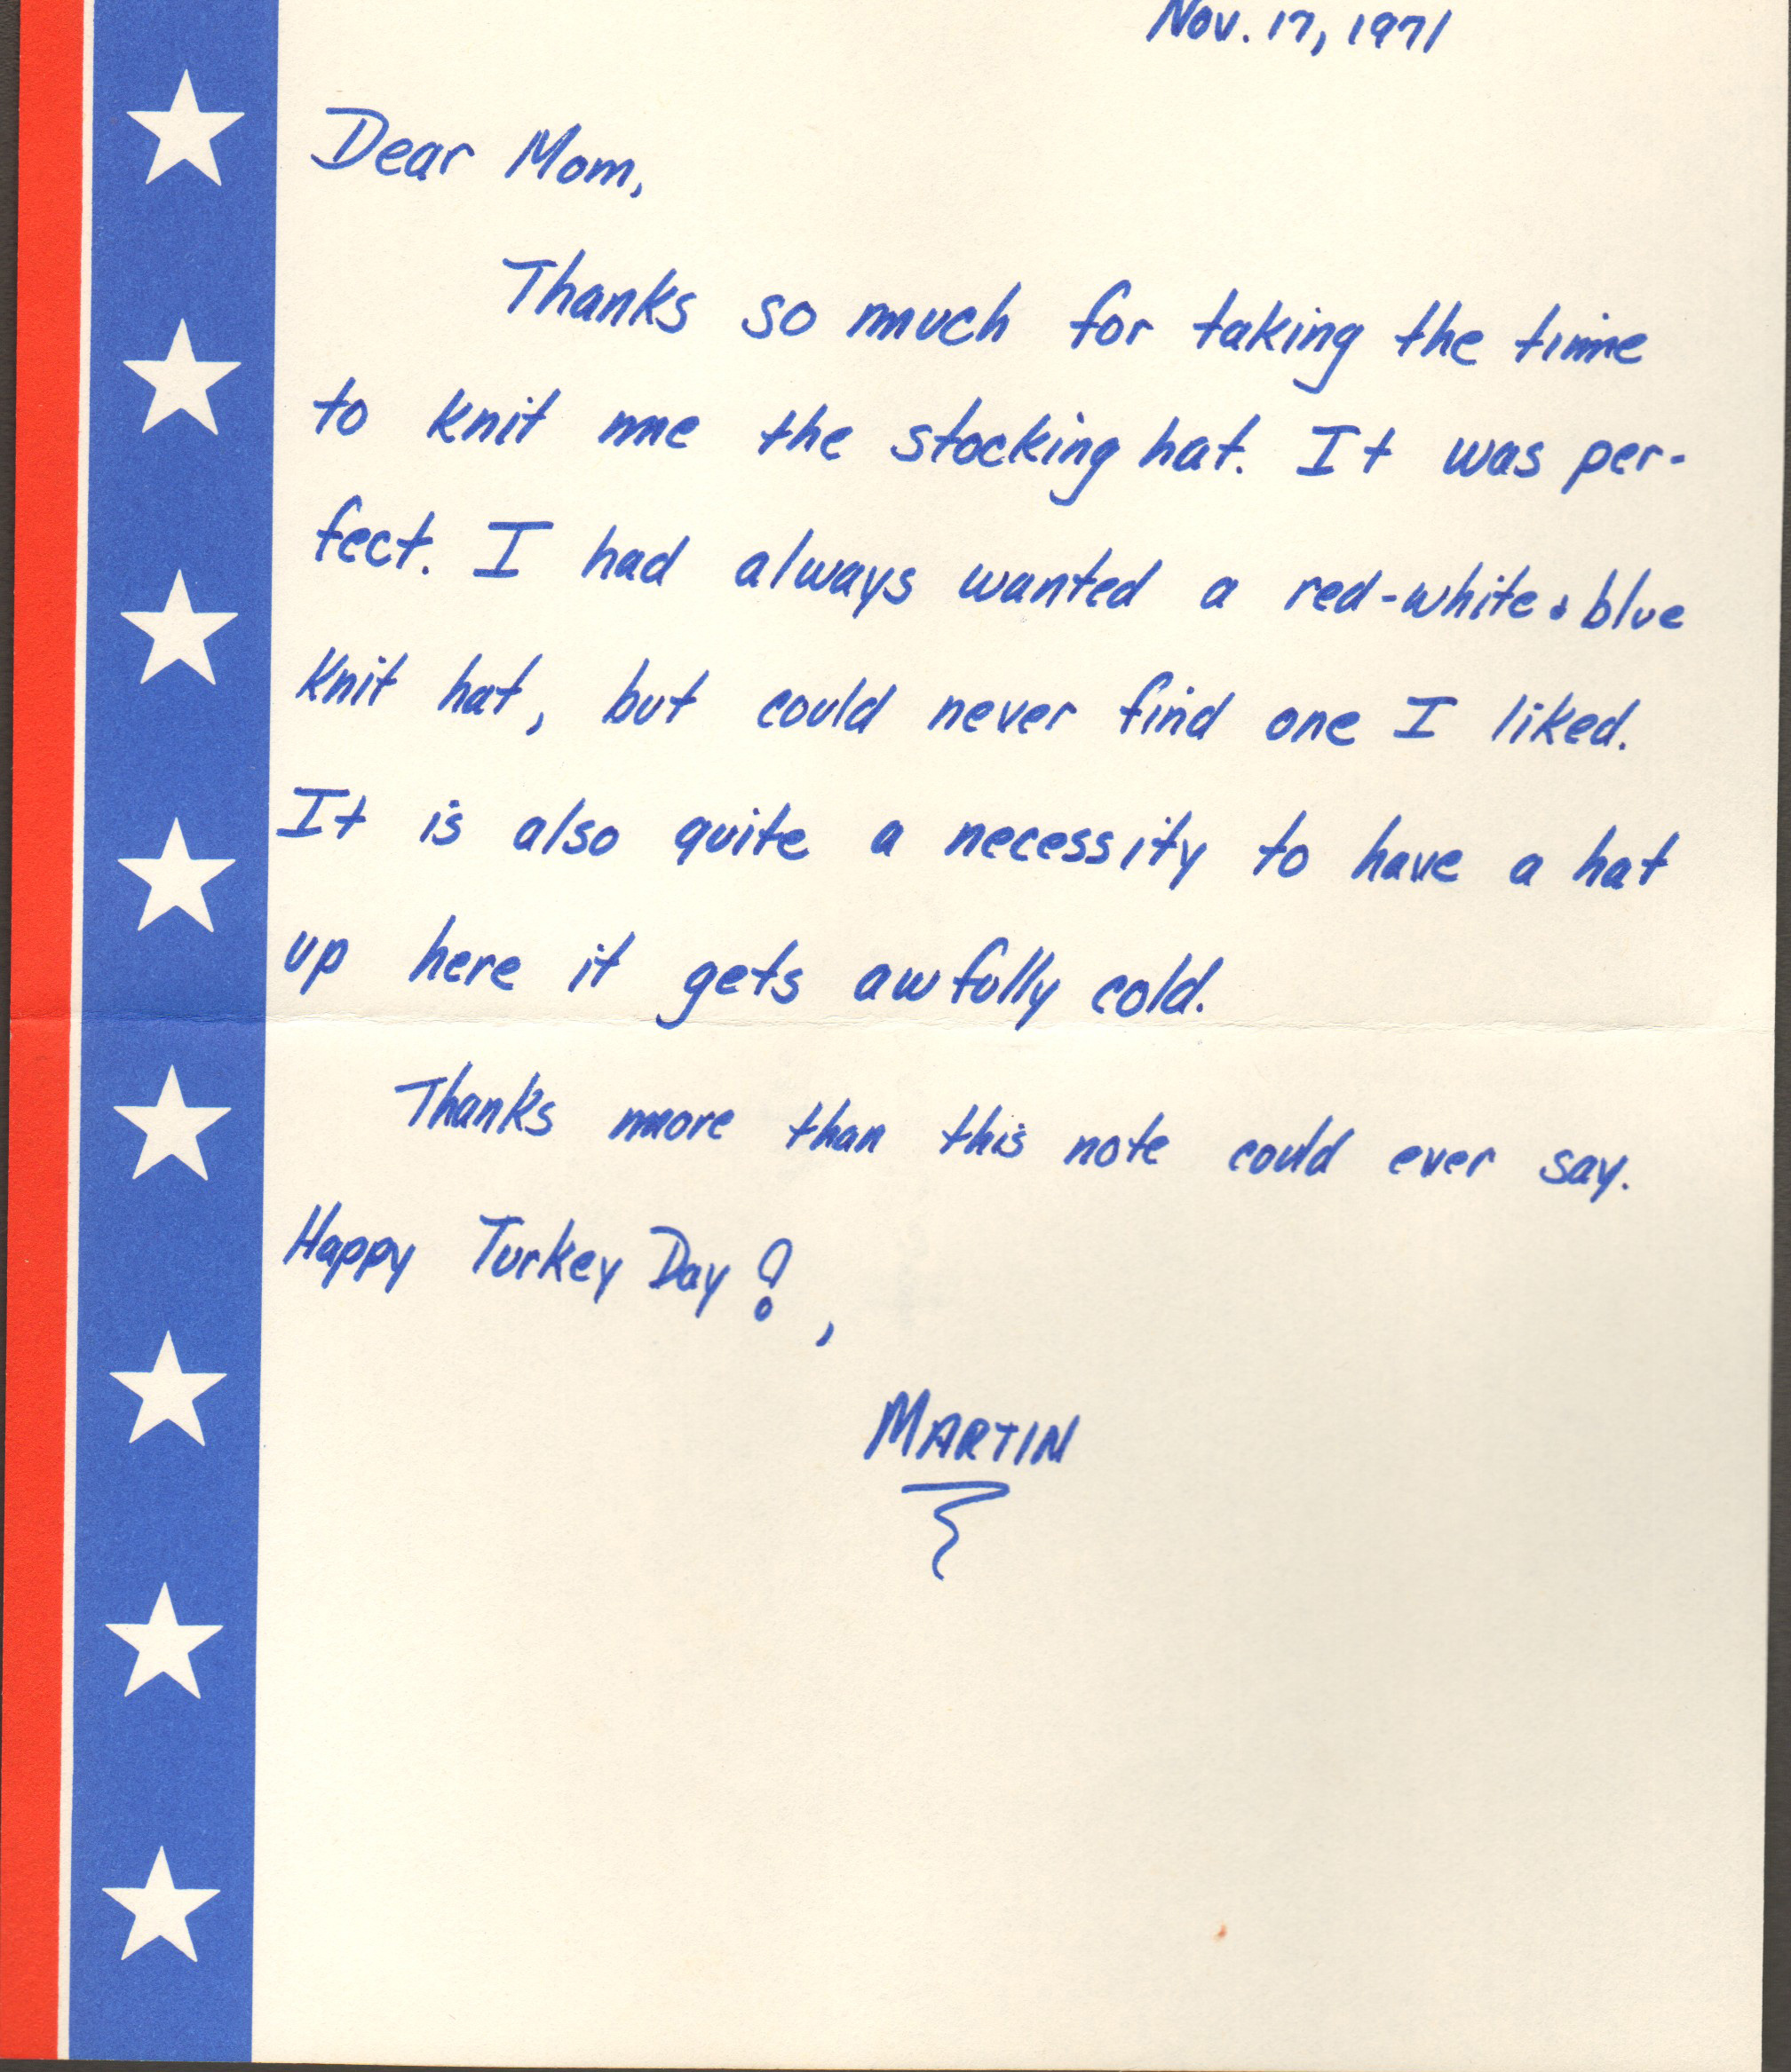 Nov. 17, 1971
Dear Mom,
Thanks so much for taking the time
to knit me the stocking hat. It was per-
fect. I had always wanted a red-white & blue
knit hat, but could never find one I liked.
It is also quite a necessity to have a hat
up here it gets awfully cold.
Thanks more than this note could ever say.
Happy Turkey Day!,
MARTIN